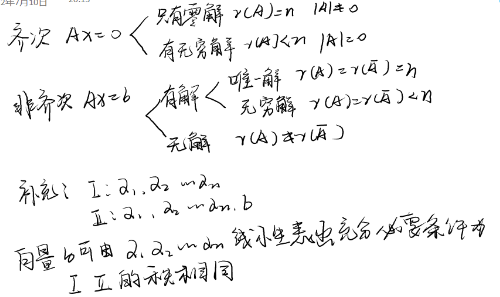 齐次 Ax=0 只有零解 r(A)=n |A|≠0
有无穷解 r(A)<n |A|=0
非齐次 Ax=b 有解 唯一解 r(A)=r(Ā)=n
无穷解 r(A)=r(Ā)<n
无解 r(A)≠r(Ā)
补充: I: α₁,α₂…αₙ
II: α₁,α₂…αₙ,b
向量b可由 α₁α₂…αₙ 线性表出充分必要条件为
I II 的秩相同